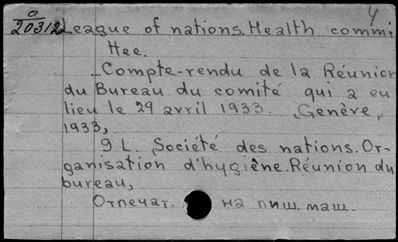 4
0
20312 League of nations. Health commi
ttee.
...Compte-rendu de la Réunion
du Bureau du comité qui a eu
lieu le 29 avril 1933. Genève,
1933,
9 L. Société des nations. Or-
ganisation d'hygiène. Réunion du
bureau,
Отпечат. на пиш. маш.